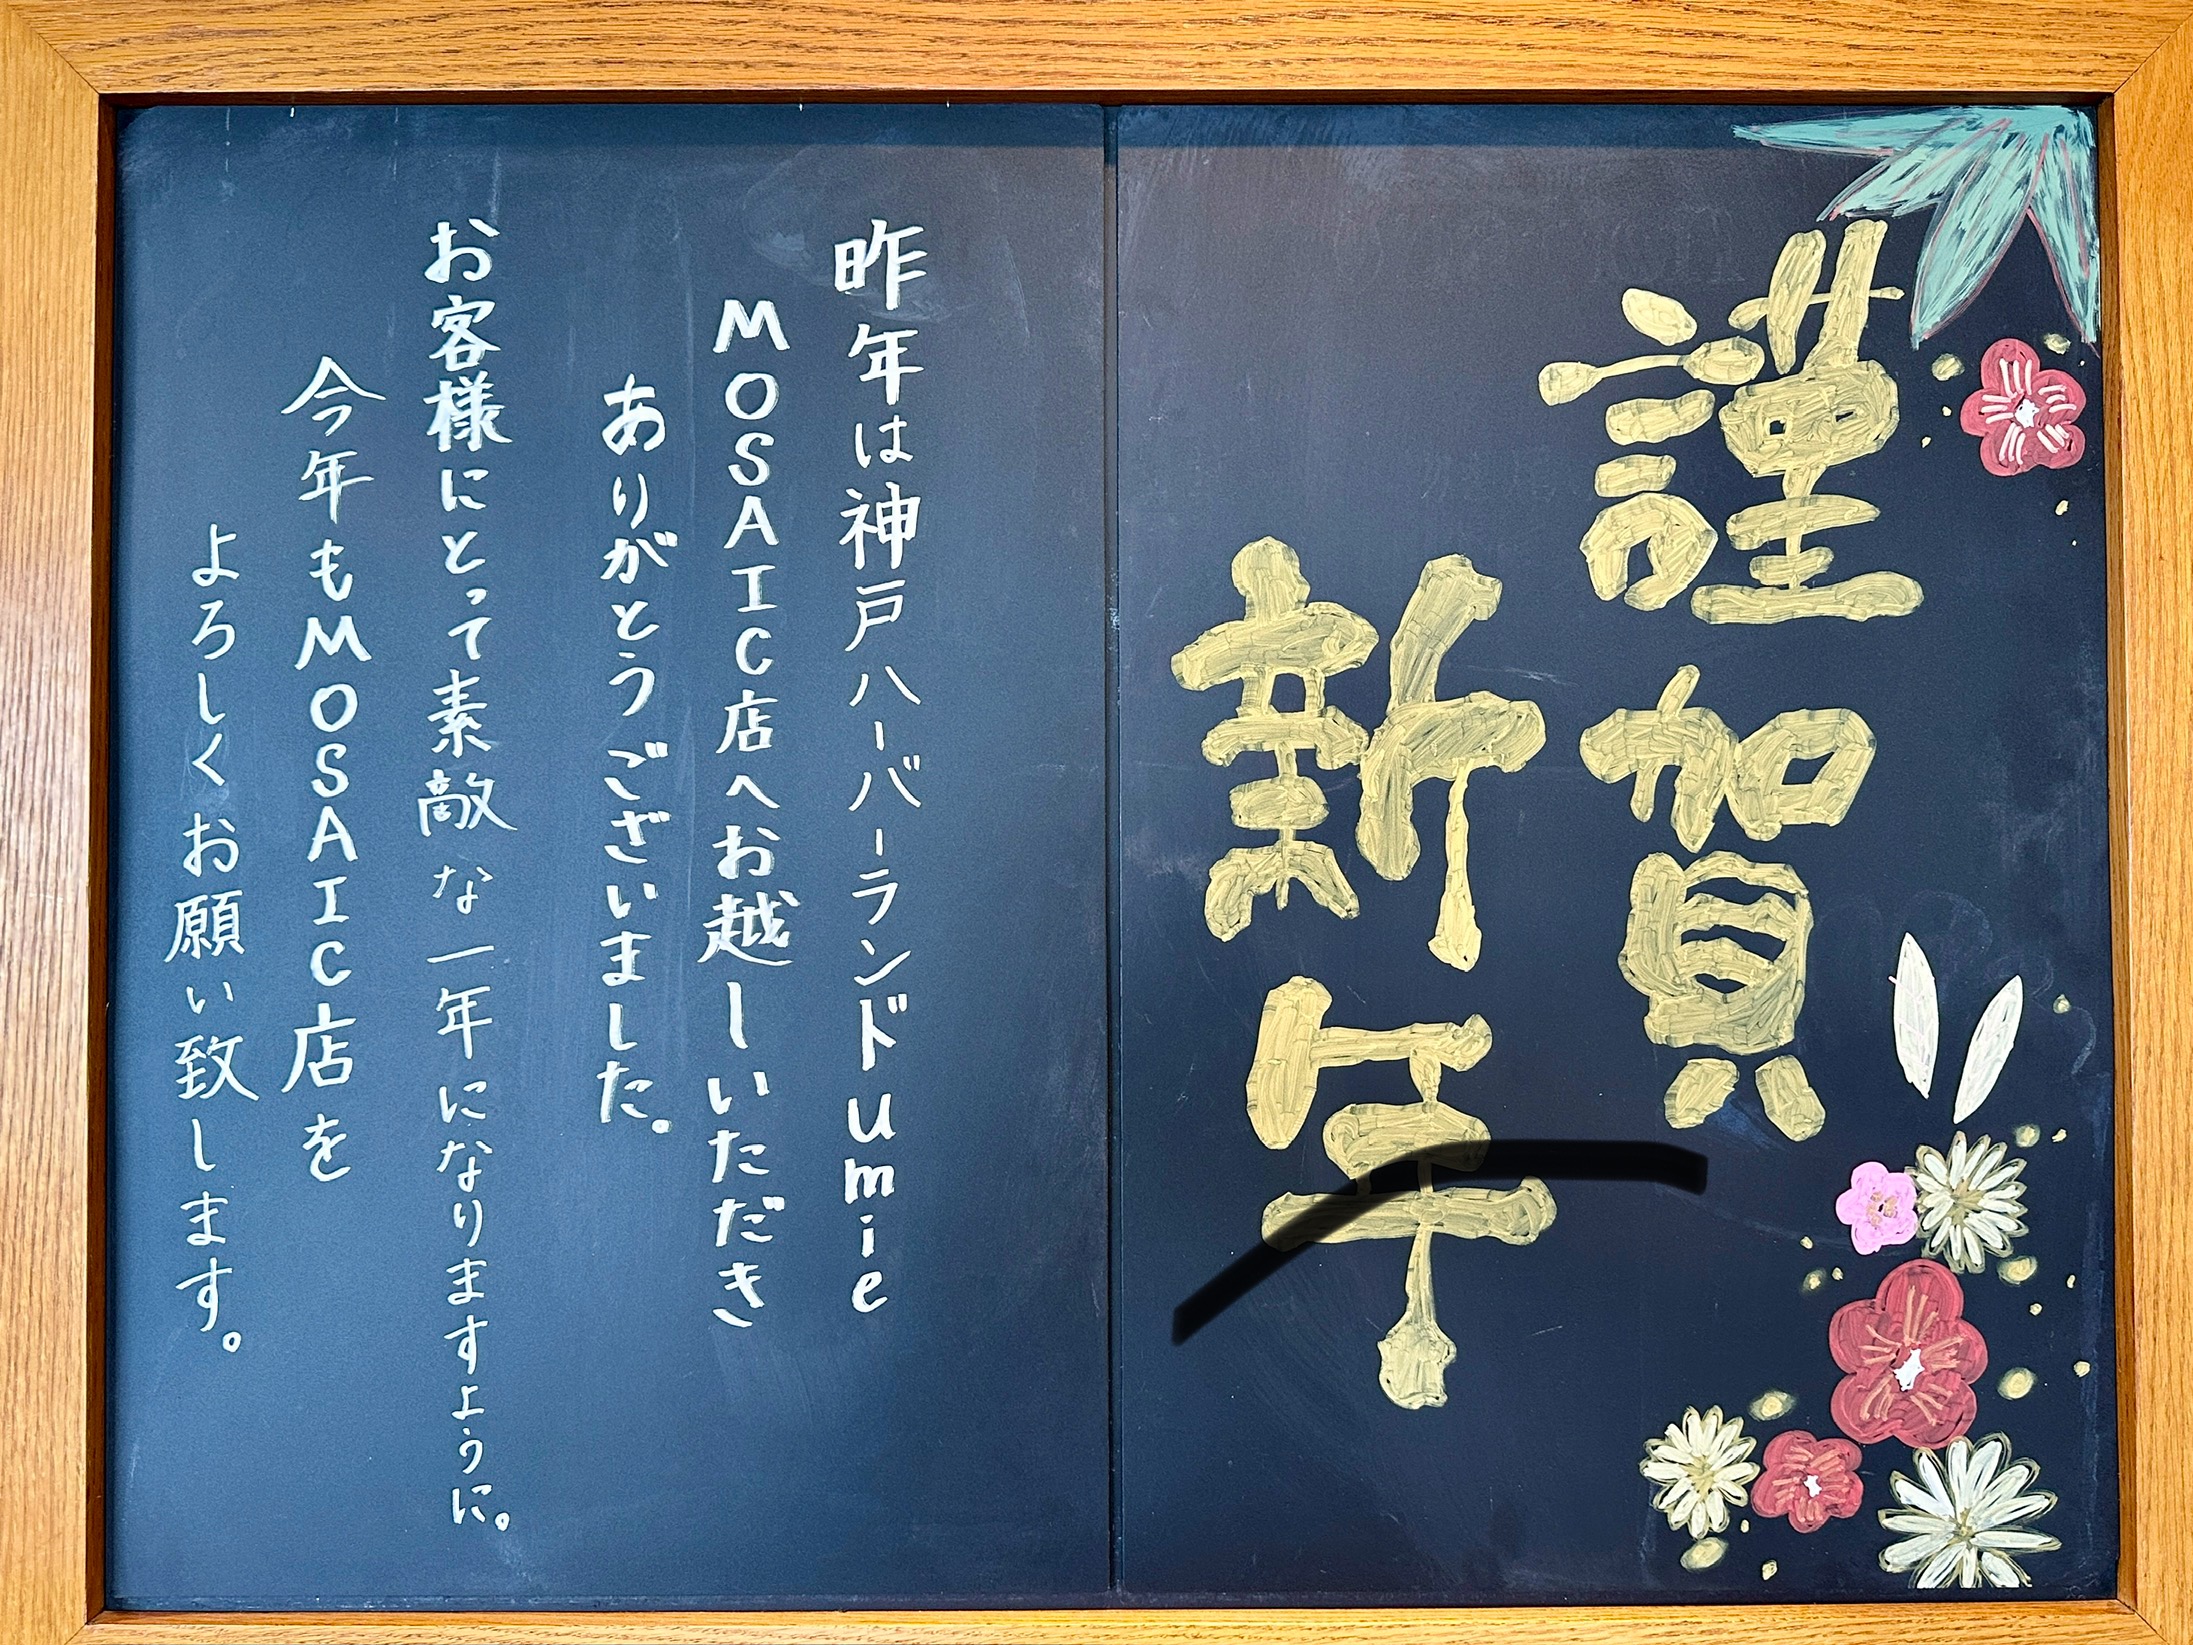 謹賀
新年
昨年は神戸ハーバーランドumie
MOSAIC店へお越しいただき
ありがとうございました。
お客様にとって素敵な一年になりますように。
今年もMOSAIC店を
よろしくお願い致します。